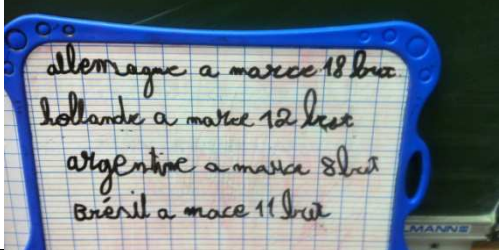 allemagne a marce 18 but
hollande a marce 12 but
argentine a marca 8 but
Brésil a mace 11 but
LMANNS